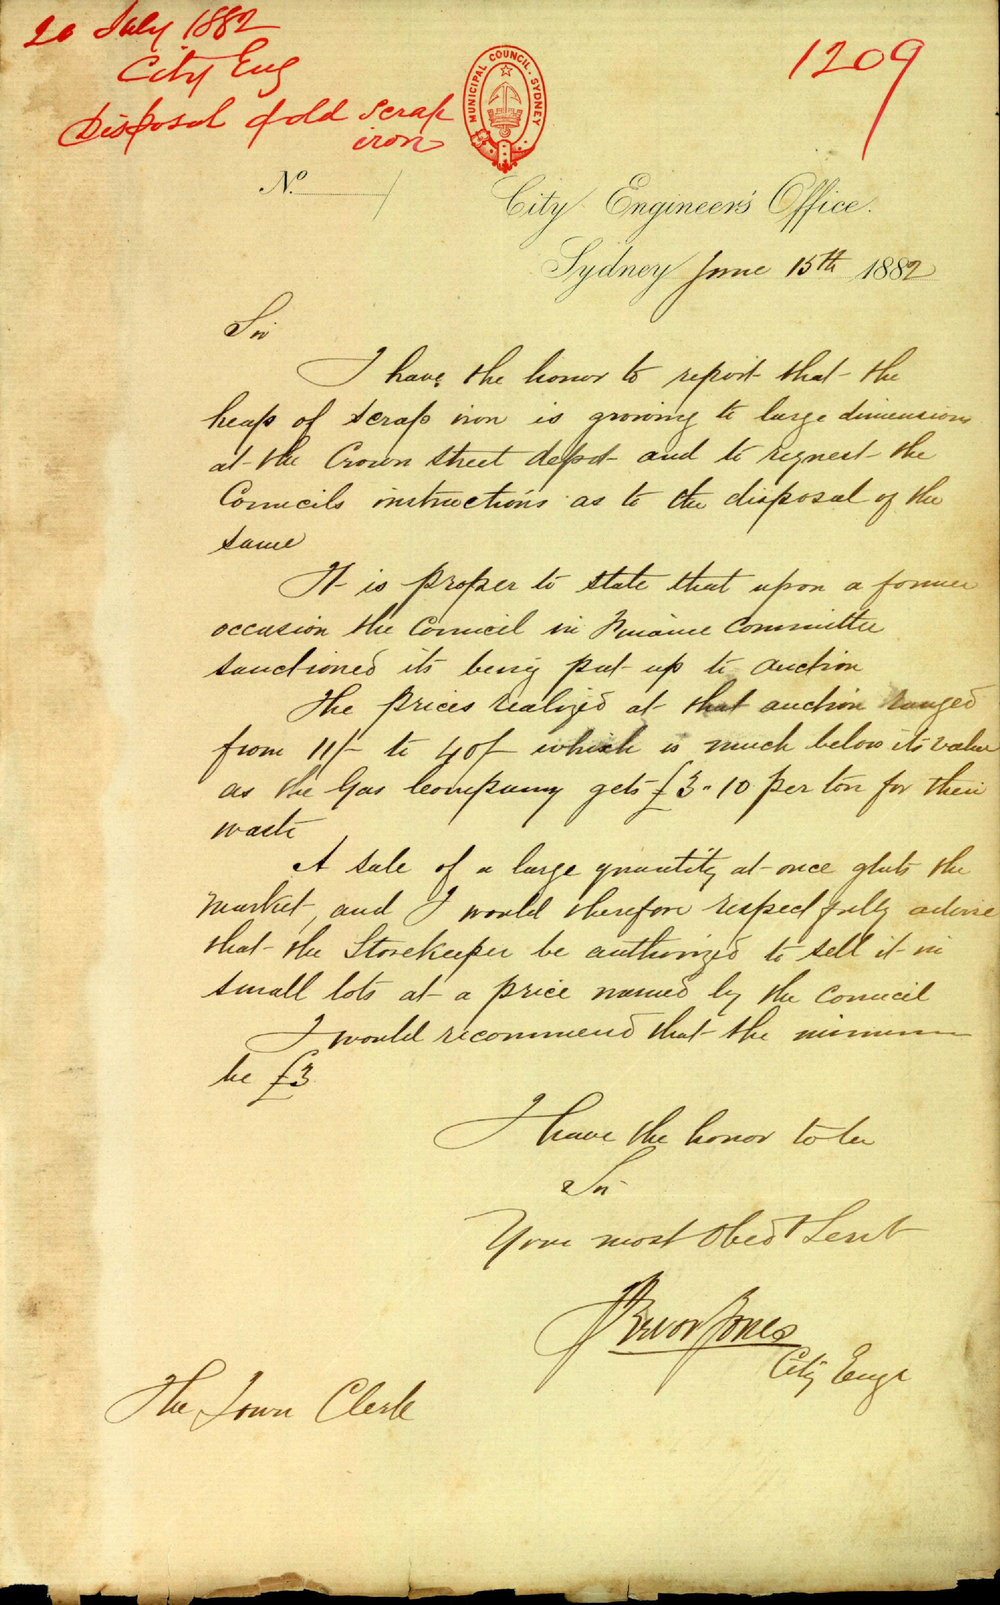 20 July 1882
City Eng
Disposal of old scrap
iron
1209
MUNICIPAL COUNCIL. SYDNEY
No.
City Engineer's Office.
Sydney June 15th 1882
Sir
I have the honor to report that the
heap of scrap iron is growing to large dimensions
at the Crown Street depot and to request the
Councils instructions as to the disposal of the
same
It is proper to state that upon a former
occasion the Council in Finance Committee
sanctioned its being put up to auction
The prices realized at that auction ranged
from 11/- to 40/- which is much below its value
as the Gas Company gets £3"10 per ton for their
waste
A sale of a large quantity at once gluts the
market, and I would therefore respectfully advise
that the Storekeeper be authorized to sell it in
small lots at a price named by the Council
I would recommend that the minimum
be £3
I have the honor to be
Sir
Your most Obed Servt
Trevor Jones
City Engr
The Town Clerk